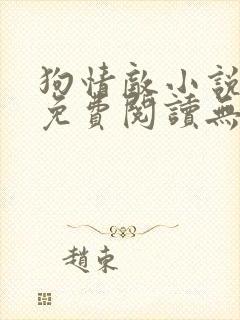 狗情敵小說
免費閱讀無
趙東